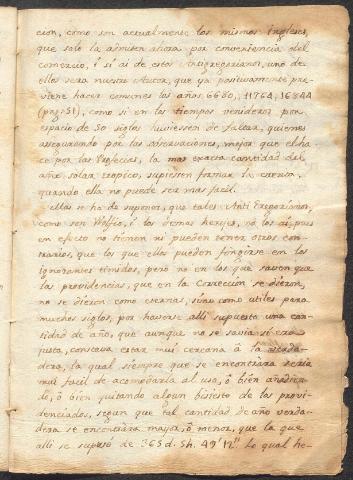 cion, como son actualmente los mismos Ingleses,
que solo la admiten ahora por conveniencia del
comercio, i si ai de estos Antigregorianos, uno de
ellos sera nuestro Autor, que ya positivamente pre-
viene hacer comunes los años 6680, 11764, 16844
(pag. 51), como si en los tiempos venideros por
espacio de 50 siglos huviessen de faltar, quienes
asegurando por las observaciones, mejor que el ha-
ce por las Profecias, la mas exacta cantidad del
año solar tropico, supiessen formar la cuenta,
quando ella no puede ser mas facil.
Mas se ha de suponer, que tales Anti Gregorianos,
como son Wolfio, i los demas herejes, no los ai, pues
en efecto no tienen ni pueden tener otros con-
trarios, que los que ellos puedan fingirse en los
ignorantes timidos, pero no en los que saven que
las providencias, que en la Correccion se dieron,
no se dieron como eternas, sino como utiles para
muchos siglos, por haverse alli supuesta una can-
tidad de año, que aunque no se savia si era
justa, constava estar mui cercana â la verda-
dera, la qual siempre que se encontrara seria
mui facil de acomodarla al uso, ô bien añadien-
do, ô bien quitando algun bisiesto de los provi-
denciados, segun que tal cantidad de año verda-
dera se encontrara mayor, ô menor, que la que
alli se supuso de 365 d. 5h. 49' 12'' Lo qual he-